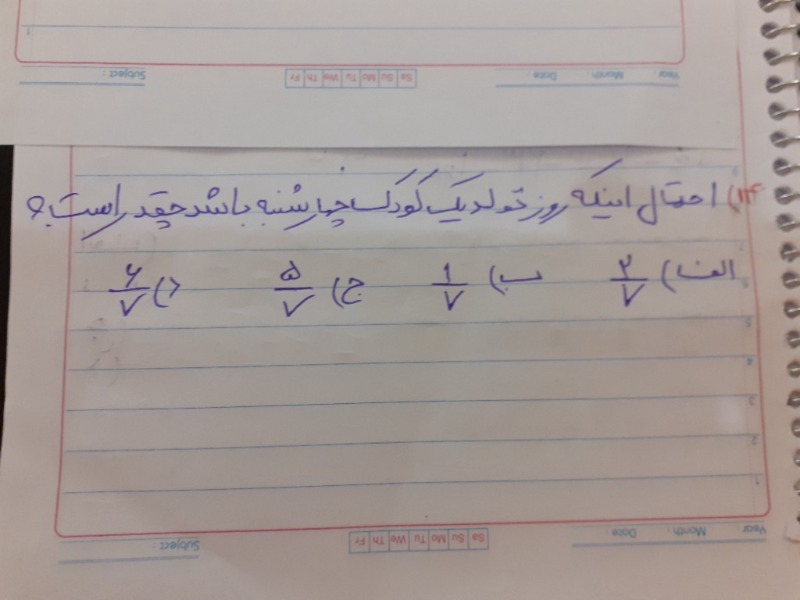 Subject :
Sa Su Mo Tu We Th Fr
Year : Month : Date :
۱۴) احتمال اینکه روز تولد یک کودک چهارشنبه باشد چقدر است؟
الف) ۲/۷ ب) ۱/۷ ج) ۵/۷ د) ۶/۷
Year : Month : Date :
Sa Su Mo Tu We Th Fr
Subject :